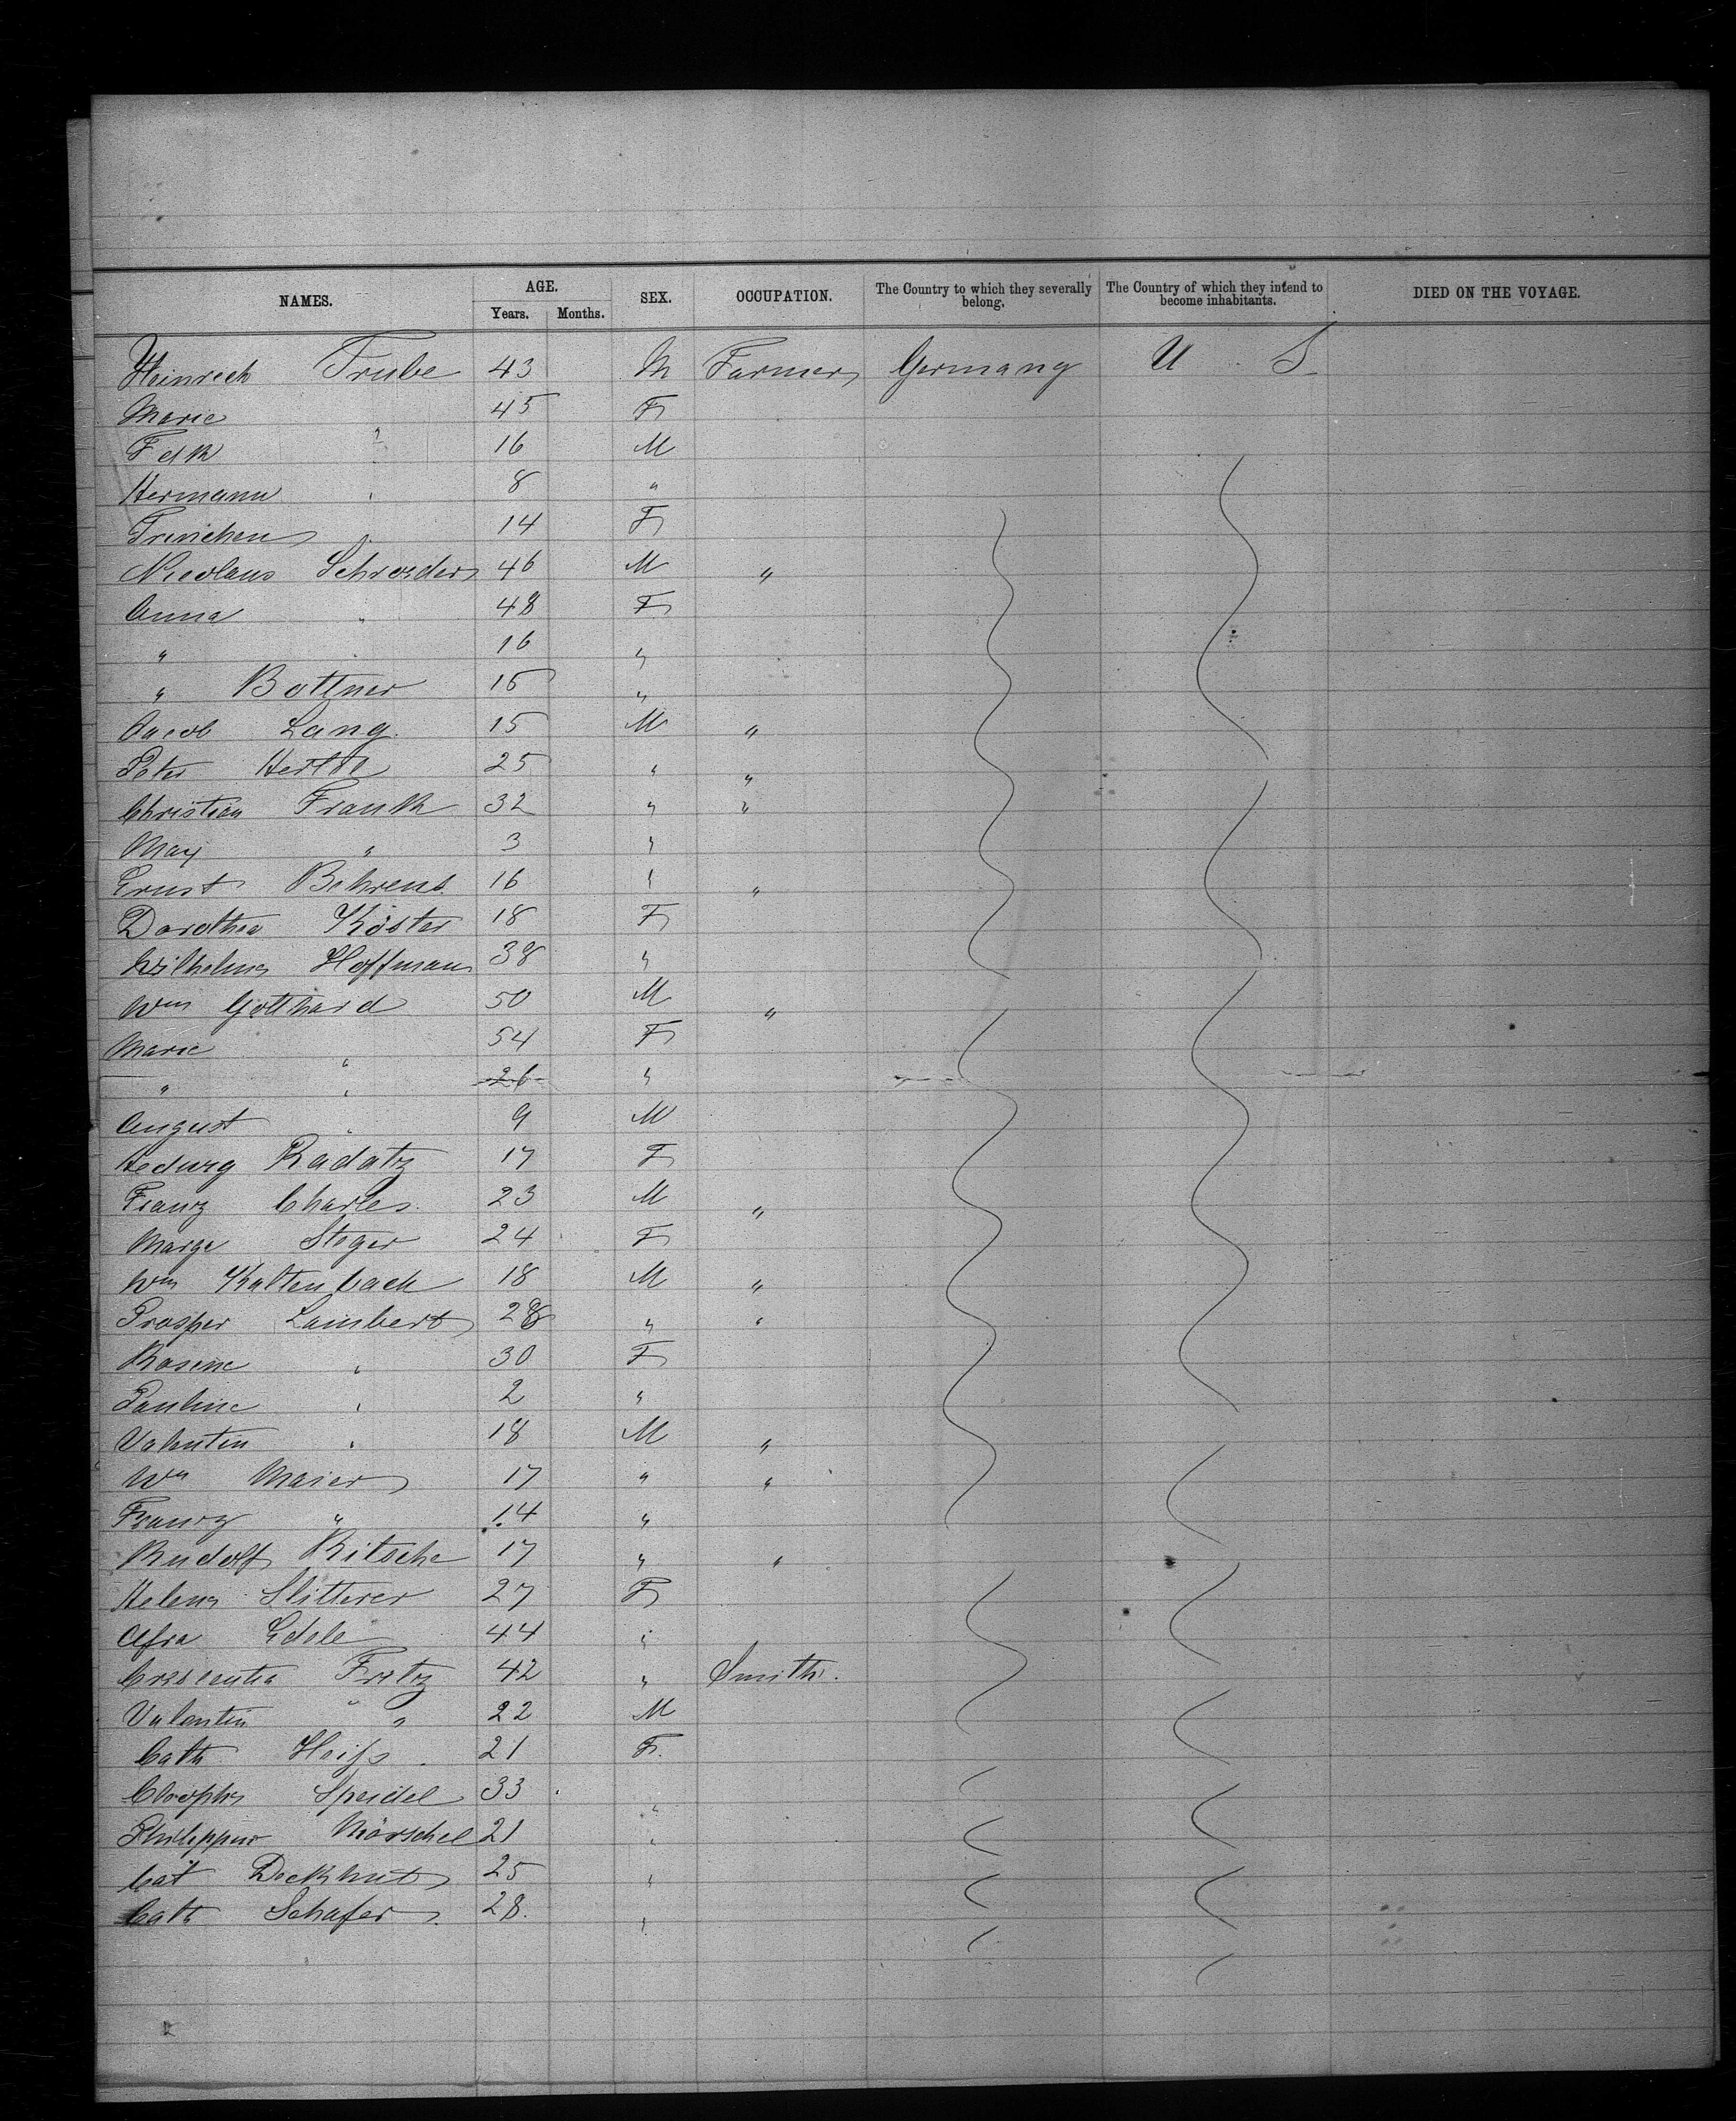 NAMES. AGE. SEX. OCCUPATION. The Country to which they severally belong. The Country of which they intend to become inhabitants. DIED ON THE VOYAGE.
Years. Months.
Heinrich Trube 43 M Farmer Germany U S
Marie 45 F
Fdk " 16 M
Hermann " 8 "
Trinchen " 14 F
Nicolaus Schroeder 46 M "
Anna " 48 F
" " 16 "
" Bottner 15 "
Jacob Lang. 15 M "
Peter 25 " "
Christian Frank 32 " "
Max " 3 "
Ernst Behrens 16 " "
Dorothea Köster 18 F
Wilhelm Hoffman 38 "
Wm Gotthard 50 M "
Marie " 54 F
" " 26 "
August " 9 M
Hedwig Radatz 17 F
Franz Charles. 23 M "
Marge Steger 24 F
Wm Kaltenback 18 M "
Prosper Lambert 28 " "
Rosine " 30 F
Pauline " 2 "
Valentin " 18 M "
Wm Maier 17 " "
Franz " 14 "
Rudolf Ritsche 17 " "
Helena Slitterer 27 F
Afra Edele 44 "
Crescentia Fritz 42 " Smith.
Valentin " 22 M
Cath Heiß 21 F.
Speidel 33 "
Philippine Mörschel 21 "
Cat Deckhut 25 "
Cath Schafer 28. "